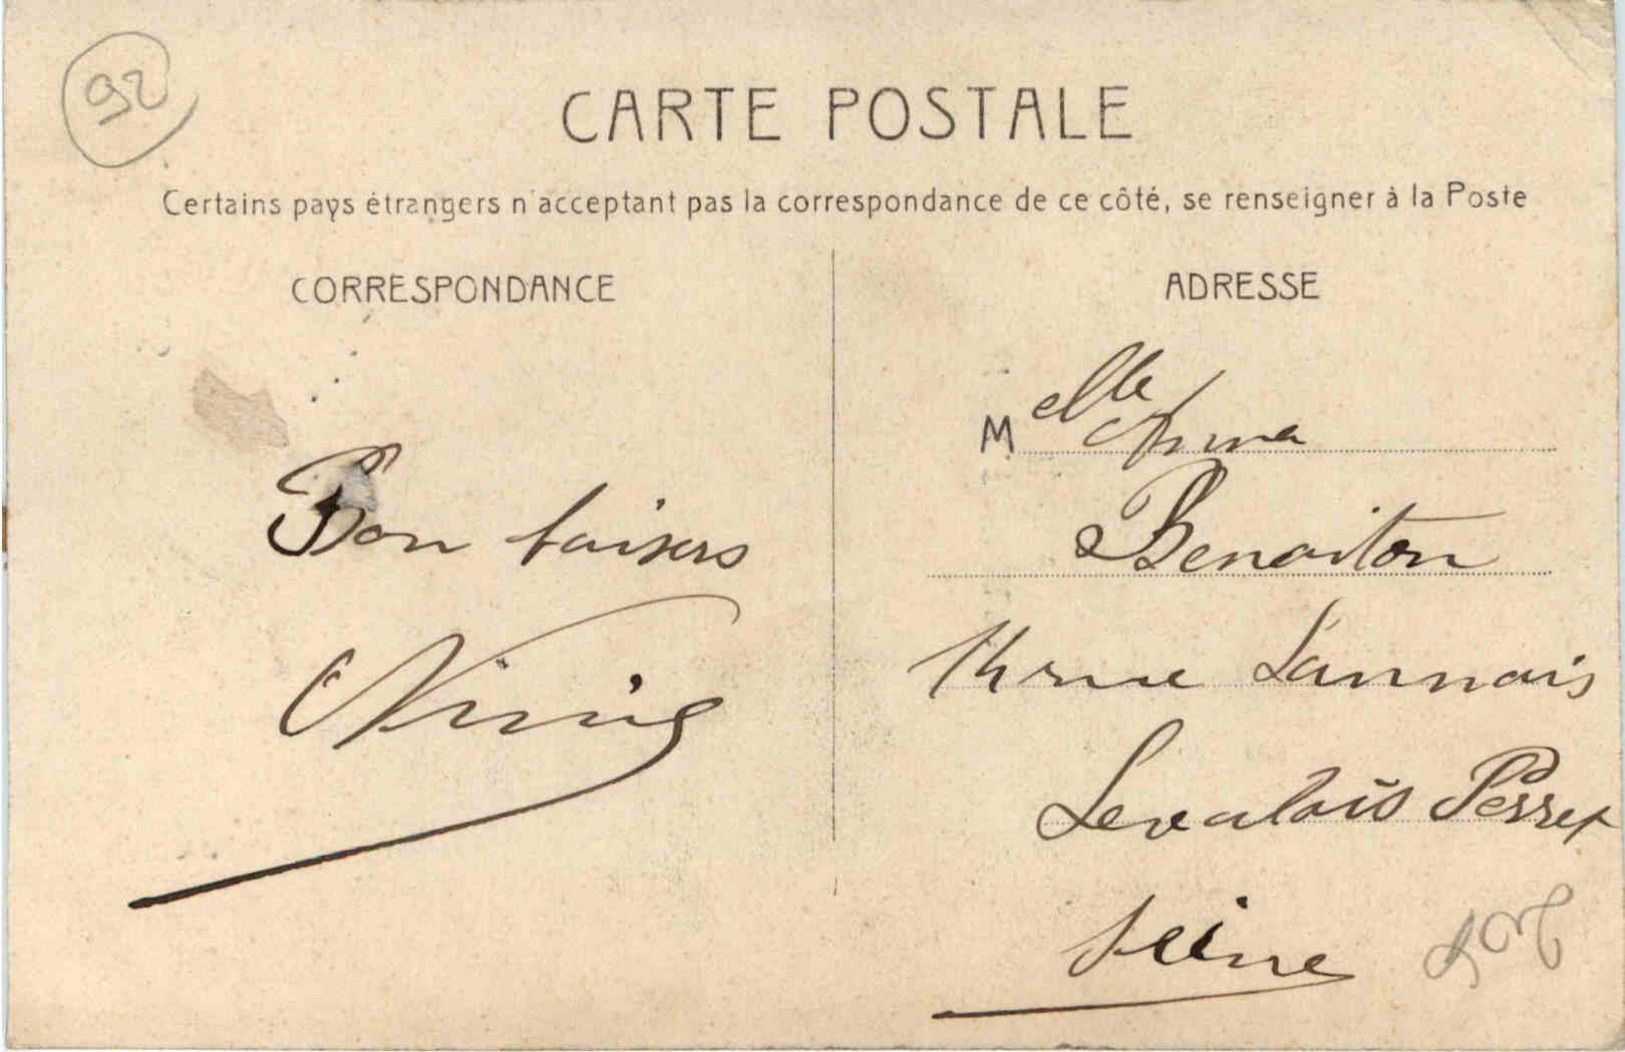 92
CARTE POSTALE
Certains pays étrangers n'acceptant pas la correspondance de ce côté, se renseigner à la Poste
CORRESPONDANCE
ADRESSE
Bon baisers
Ninie
Melle Anna
Benoiton
14 rue Lannois
Levalois Perret
Seine